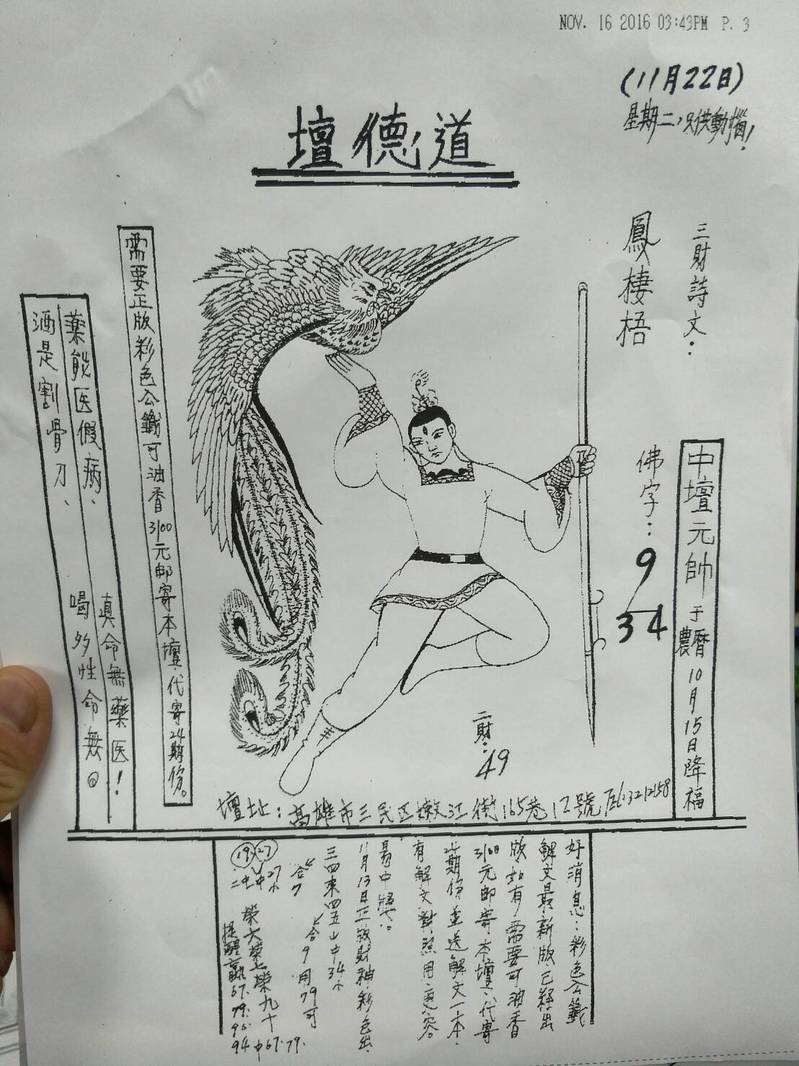 NOV. 16 2016 03:43PM P. 3
(11月22日)
星期二,只供動惱!
道德壇
三財詩文:
鳳棲梧
中壇元帥于農曆10月15日降福
佛字:
9
34
二財:
49
需要正版彩色公籤可油香3100元邮寄本壇.代寄24期份。
藥能医假病、真命無藥医!
酒是割骨刀、喝多性命無。
壇址:高雄市三民區嫩江街165巷12號
好消息:彩色公籤
解文最新版已释出
版如有需要可油香
3100元邮寄本壇、代寄
24期份、並送解文一本.
有解文對照用更容
易中獎。
11月13日正版財神彩色出.
三四來四五山中34.
合9用79可
合7
榮六榮七榮九十中67.79.
提醒贏67.79.96.94
19 27